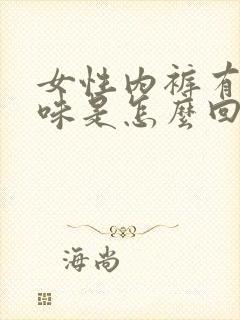 女性内裤有
味是怎麼回
海尚